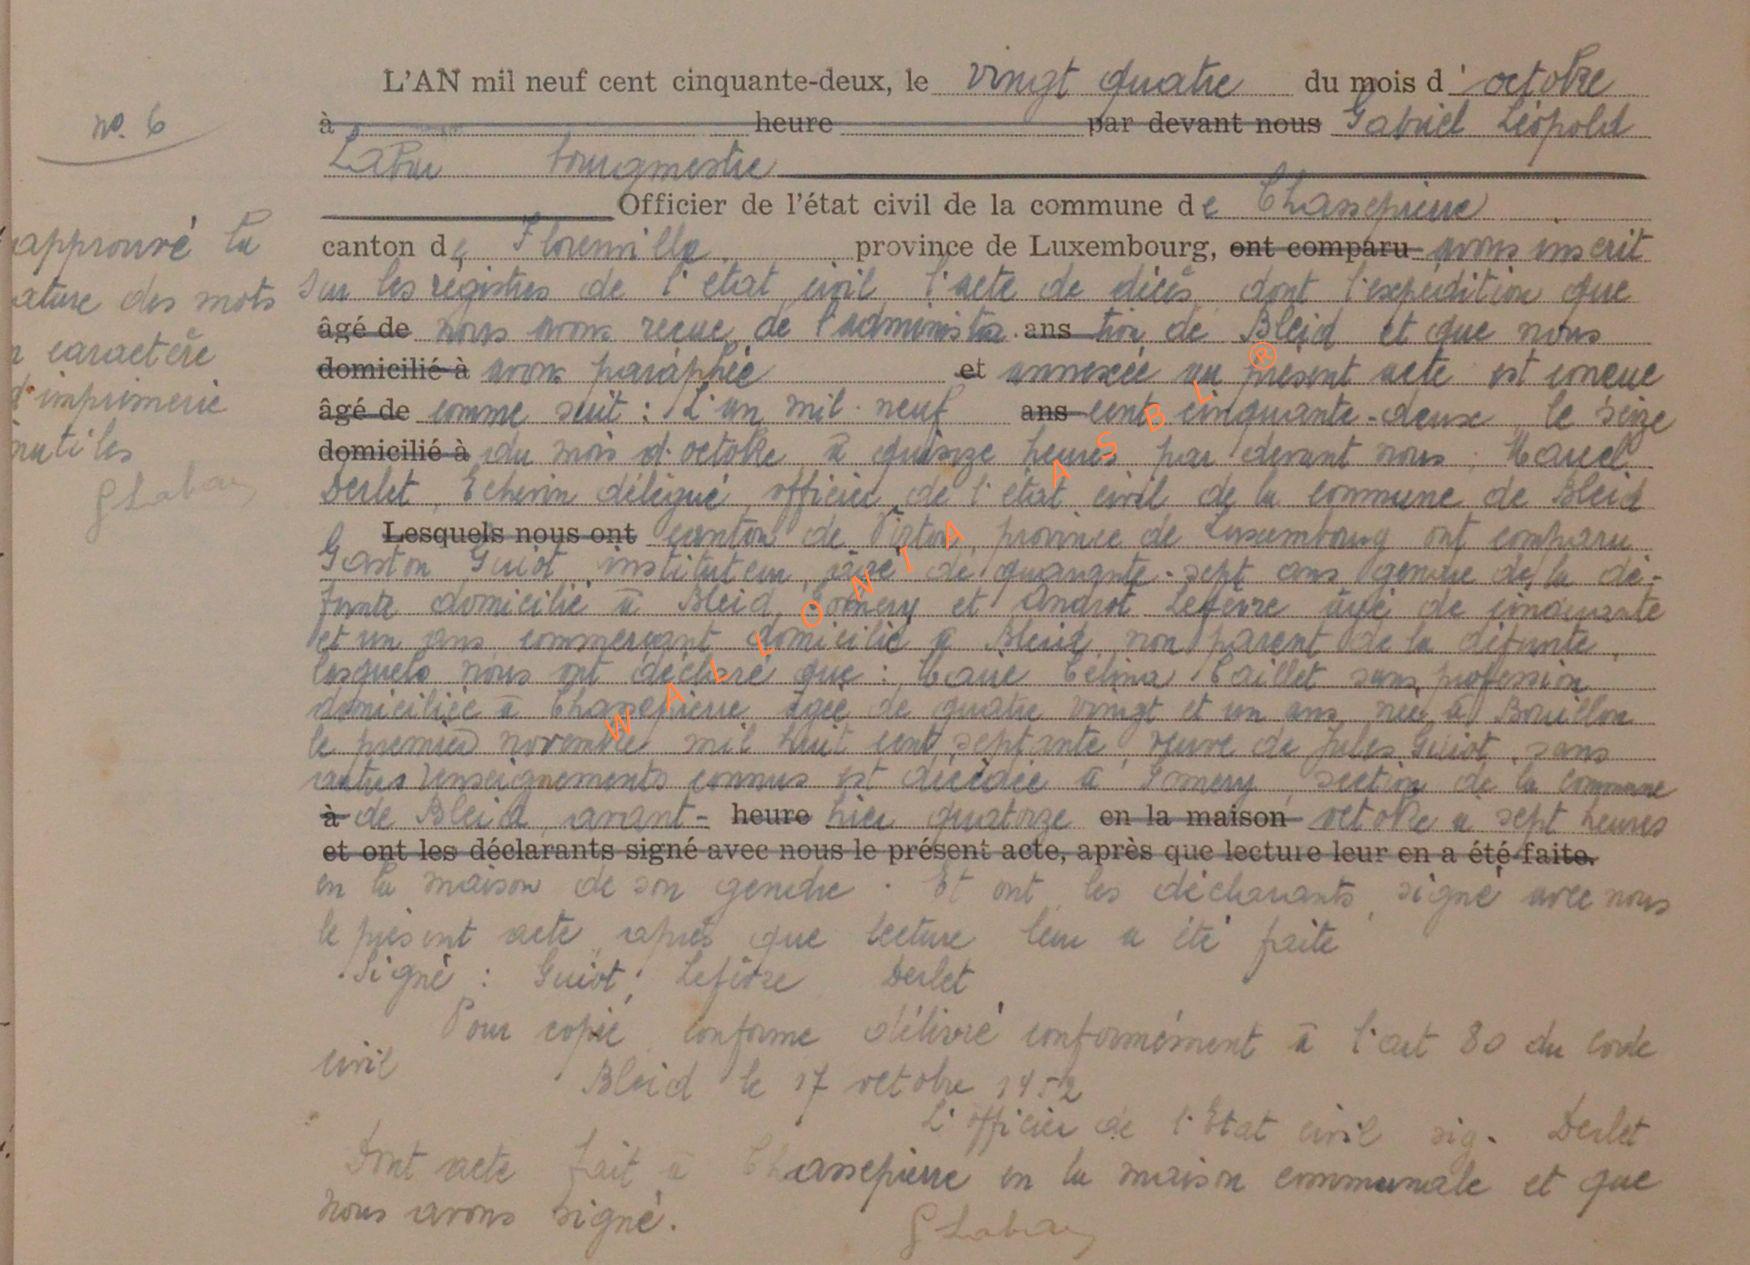 L'AN mil neuf cent cinquante-deux, le vingt quatre du mois d'octobre
n° 6
à heure par devant nous Gabriel Léopold
Labur bourgmestre
Officier de l'état civil de la commune de Chassepierre
canton de Florenville province de Luxembourg, ont comparu avons inscrit
sur les registres de l'état civil l'acte de décès dont l'expédition que
âgé de nous avons reçue de l'administra ans tion de Bleid et que nous
domicilié à avons paraphée et annexée au présent acte est conçue
âgé de comme suit : L'an mil neuf ans cent cinquante-deux le seize
domicilié à du mois d'octobre à quinze heures par devant nous, Marcel
Derlet, Echevin délégué, officier de l'état civil de la commune de Bleid
Lesquels nous ont canton de Virton, province de Luxembourg ont comparu
Gaston Guiot, instituteur, âgé de quarante-sept ans gendre de la dé-
funte domicilié à Bleid, Gomery et Androt Lefèvre âgé de cinquante
et un ans commerçant domicilié à Bleid, non parent de la défunte,
lesquels nous ont déclaré que : Marie Célina Caillet sans profession
domiciliée à Chassepierre âgée de quatre vingt et un ans née à Bouillon
le premier novembre mil huit cent septante, veuve de Jules Guiot, sans
autres renseignements connus est décédée à Gomery, section de la commune
à de Bleid, avant- heure hier quatorze en la maison octobre à sept heures
et ont les déclarants signé avec nous le présent acte, après que lecture leur en a été faite.
en la maison de son gendre. Et ont les déclarants signé avec nous
le présent acte après que lecture leur a été faite
Signé : Guiot, Lefèvre Derlet
Pour copie conforme délivré conformément à l'art 80 du code
civil
Bleid le 17 octobre 1952
L'officier de l'Etat civil sig. Derlet
Dont acte fait à Chassepierre en la maison communale et que
nous avons signé.
approuvé la
ature des mots
n caractère
d'imprimerie
nutiles
WALLONIA ASBL ®